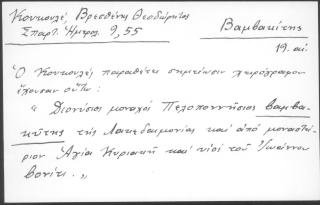 Κουκουλέ, Βρεσθένης Θεοδώρητος
Σπαρτ. Ἡμερολ. 9, 55
Βαμβακίτης
19. αἰ.
Ὁ Κουκουλές παραθέτει σημείωσιν χειρογράφου
ἔχουσαν οὕτω:
" Διονύσιος μοναχός Πελοποννήσιος βαμβα-
κύτης τῆς Λακεδαιμονίας καί ἀπό μοναστή-
ριον Ἁγία Κυριακή καί υἱός τοῦ Ἰωάννου